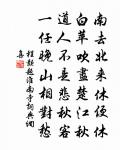 南去北来休便休
白苹吹盡楚江秋
道人不是悲秋客
一任晚山相對愁
程顥題淮南寺詞典網